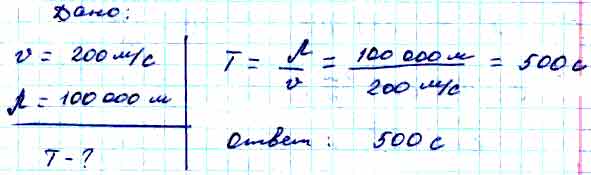 Дано:
v = 200 м/с
λ = 100 000 м
T - ?
T = λ/v = 100 000 м / 200 м/с = 500 с
Ответ: 500 с